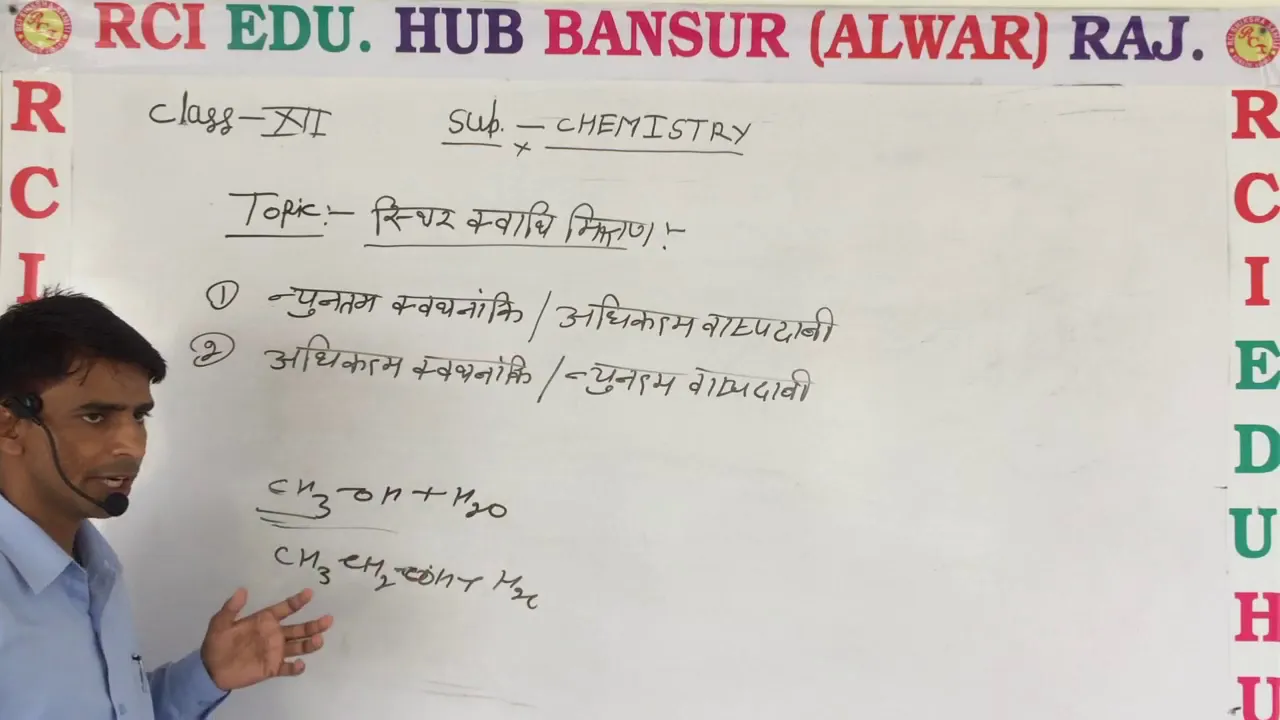 RCI EDU. HUB BANSUR (ALWAR) RAJ.
R
C
I
Class-XII Sub. - CHEMISTRY
Topic:- स्थिर क्वाथि मिश्रण:-
① न्युनतम क्वथनांकि / अधिकतम वाष्पदाबी
② अधिकतम क्वथनांकि / न्युनतम वाष्पदाबी
CH3-OH + H2O
CH3-CH2-OH +
R
C
I
E
D
U
H
U